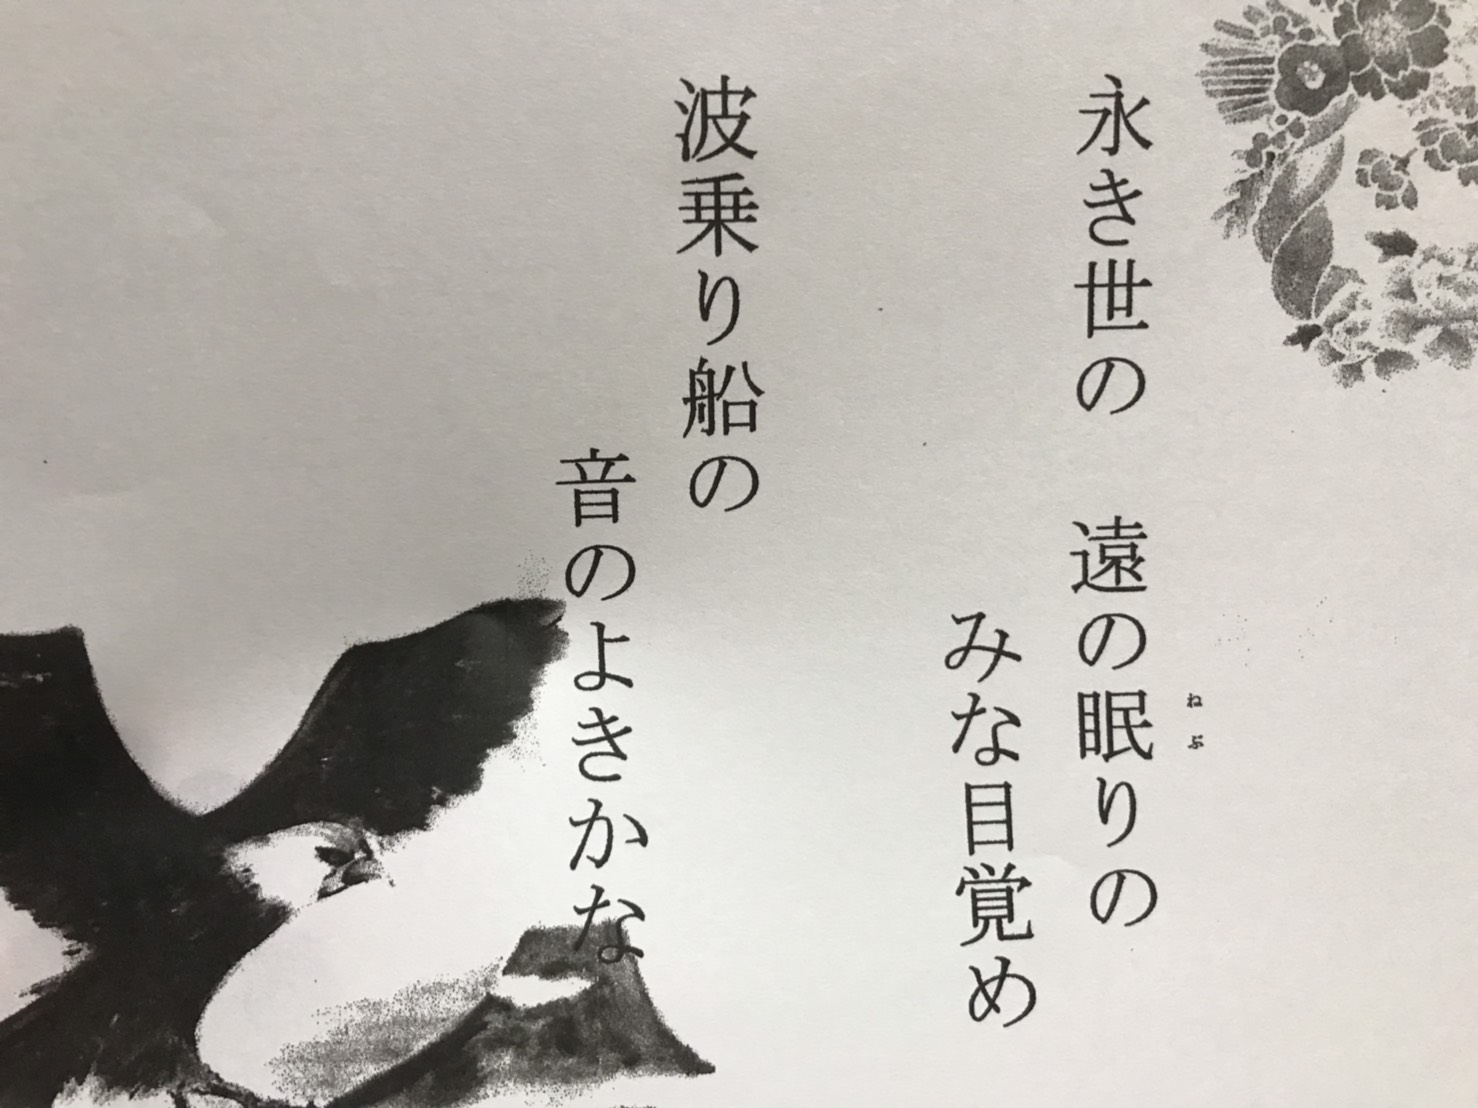 永き世の　遠の眠りの
みな目覚め
波乗り船の
音のよきかな
ねぶ